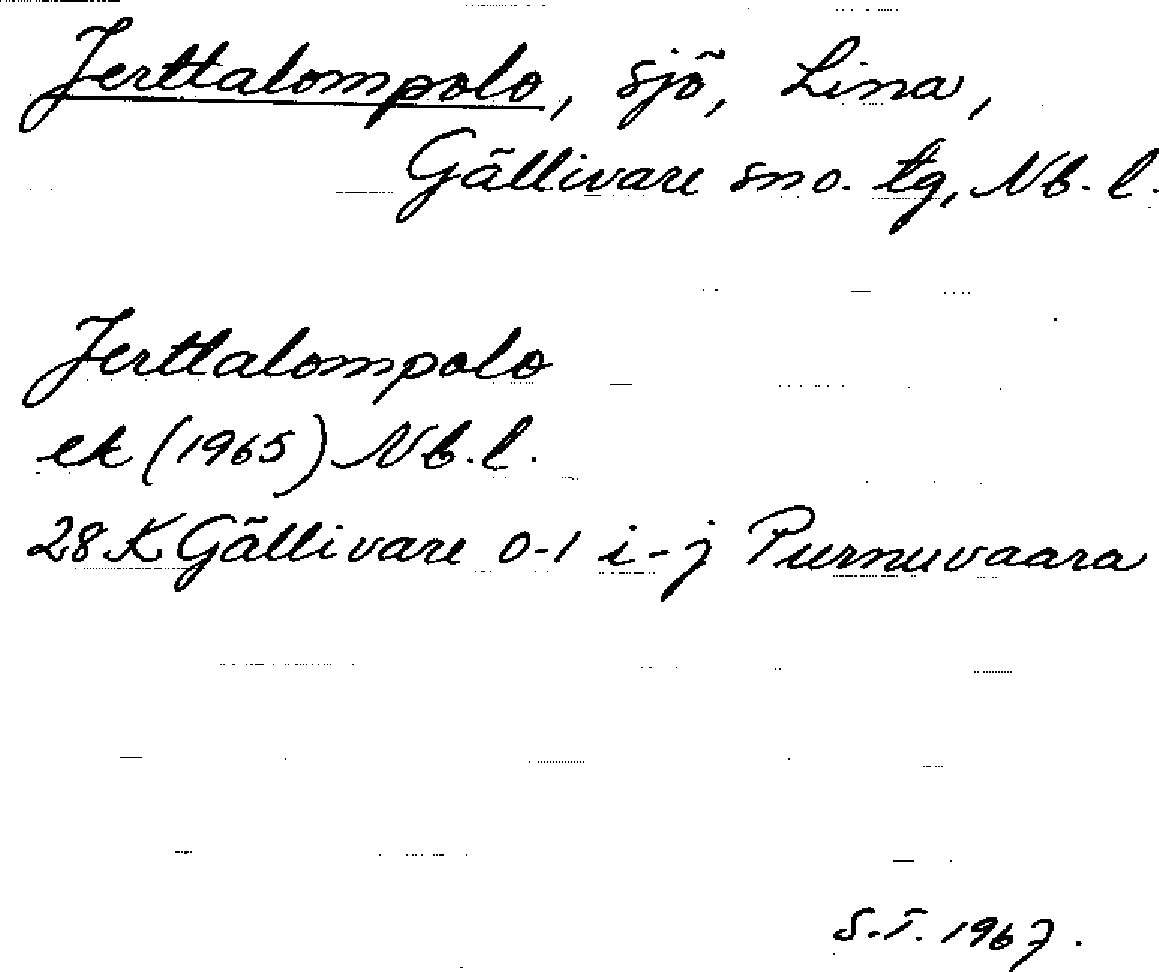 Jerttalompolo, sjö, Lina,
Gällivare sno. tg, Nb. l.
Jerttalompolo
ek (1965) Nb. l.
28 K Gällivare 0-1 i-j Purnuvaara
S.T. 1967.